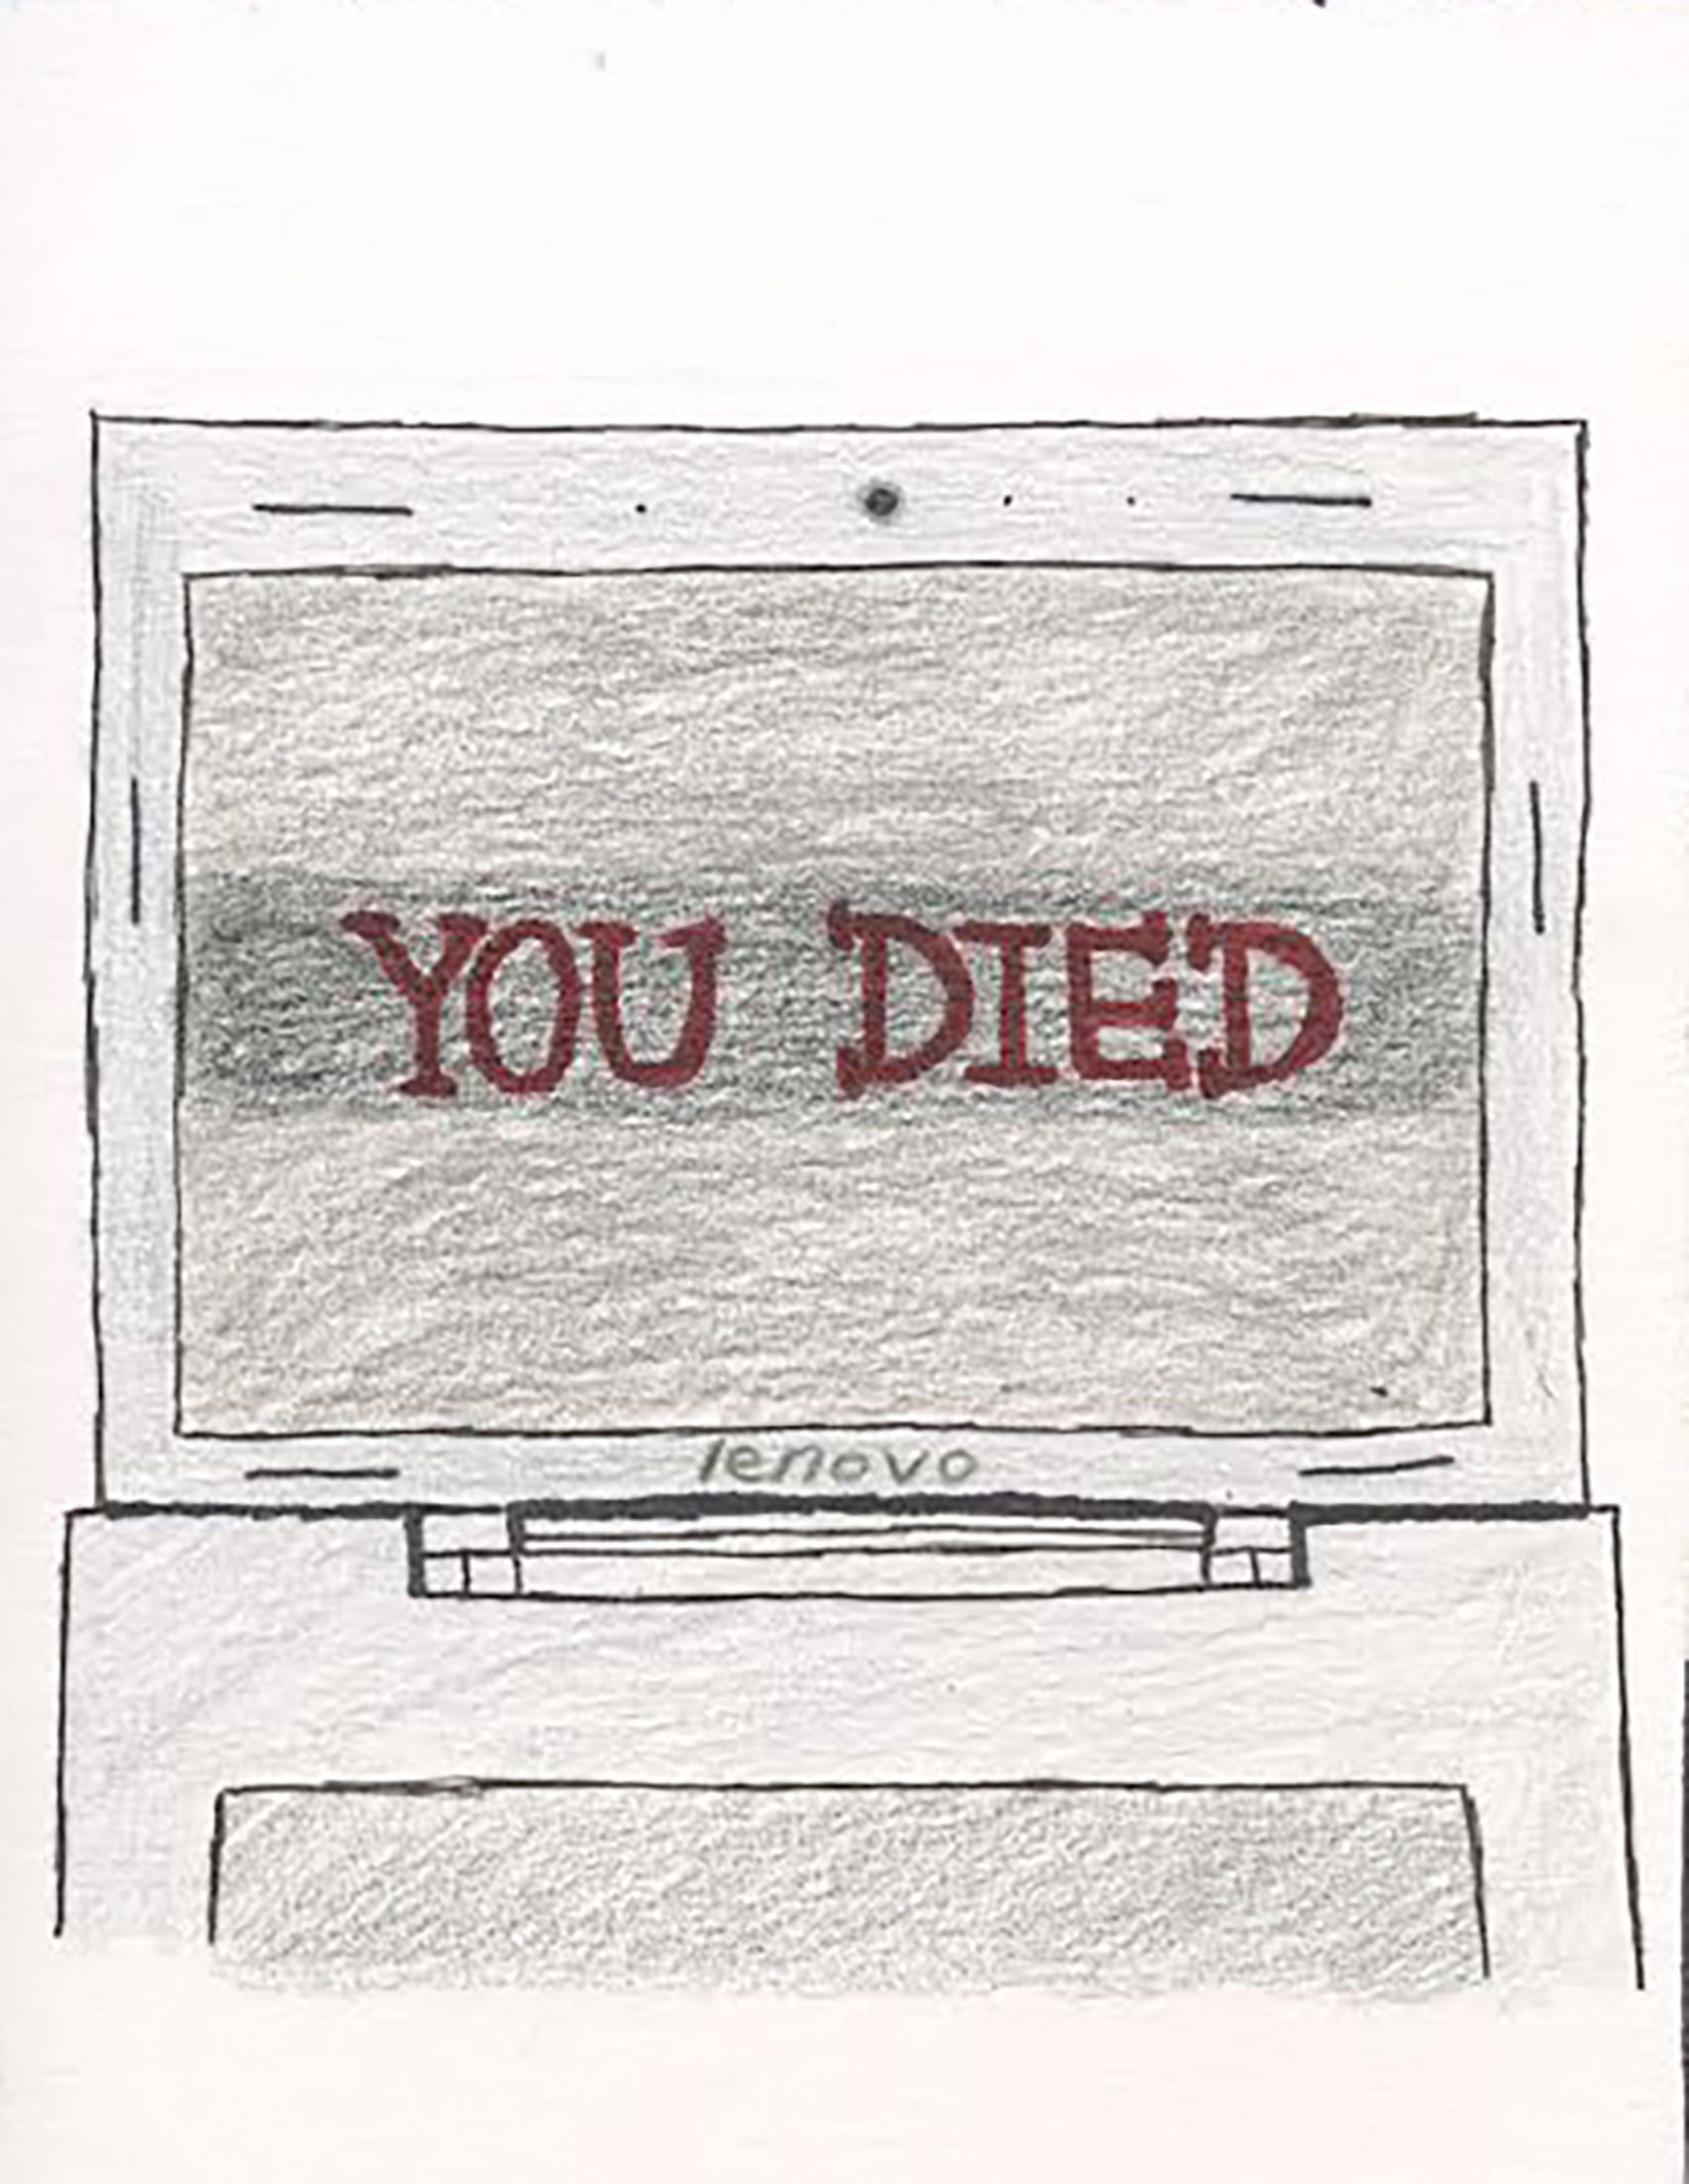 YOU DIED
lenovo